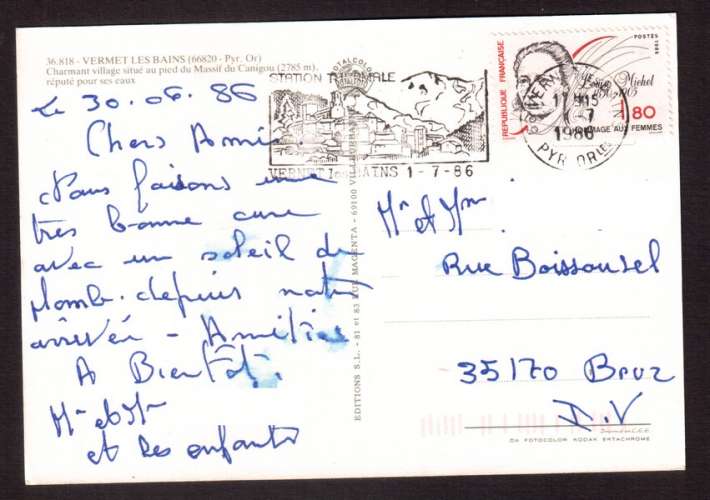 36.818 - VERMET LES BAINS (66820 - Pyr. Or)
Charmant village situé au pied du Massif du Canigou (2785 m).
réputé pour ses eaux
Le 30.06.86
Chers Amis
Nous faisons une
très bonne cure
avec un soleil de
plomb. depuis notre
arrivée - Amitiés
A Bientôt.
Mr et Mme
et les enfants
STATION THERMALE
VERNET les BAINS 1-7-86
EDITIONS S.L. - 81 et 83 RUE MAGENTA - 69100 VILLEURBANNE
REPUBLIQUE FRANÇAISE
POSTES
1986
Louise Michel
1,80
HOMMAGE AUX FEMMES
1986
PYR ORles
Mr et Mme
Rue Boissousel
35170 Bruz
I.V
CA FOTOCOLOR KODAK EKTACHROME